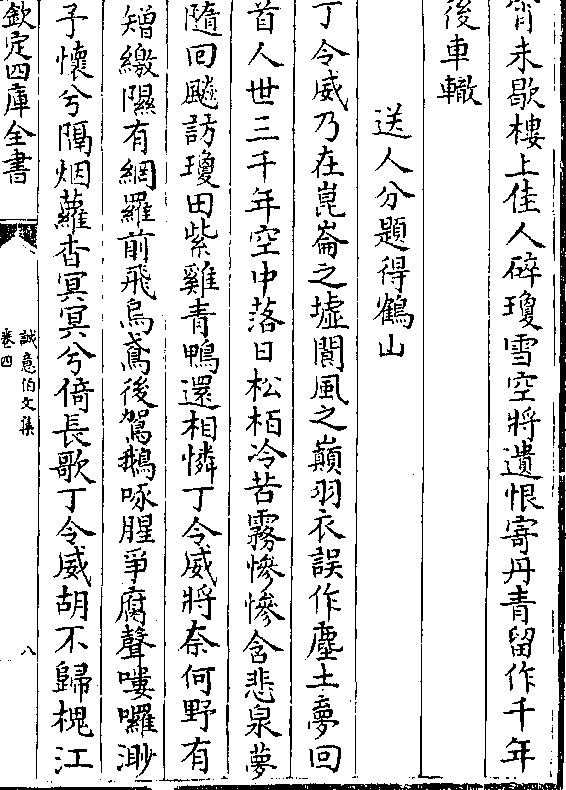 未歇樓上佳人碎瓊雪空將遺恨寄丹青留作千年
後車轍
送人分題得鶴山
丁令威乃在崑崙之墟閬風之巔羽衣誤作塵土夢回
首人世三千年空中落日松栢冷苦霧慘慘含悲泉夢
隨回飈訪瓊田紫雞青鴨還相憐丁令威將奈何野有
矰繳隰有網羅前飛烏鳶後駕鵝啄腥爭腐聲嘍囉渺
予懷兮隔烟蘿杳冥冥兮倚長歌丁令威胡不歸槐江
欽定四庫全書
誠意伯文集
卷四
八